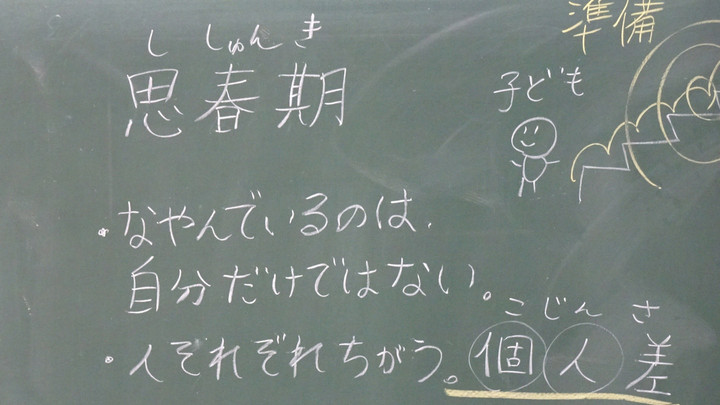 ししゅんき
思春期
準備
子ども
・なやんでいるのは、
自分だけではない。
・人それぞれちがう。
こじんさ
個人差